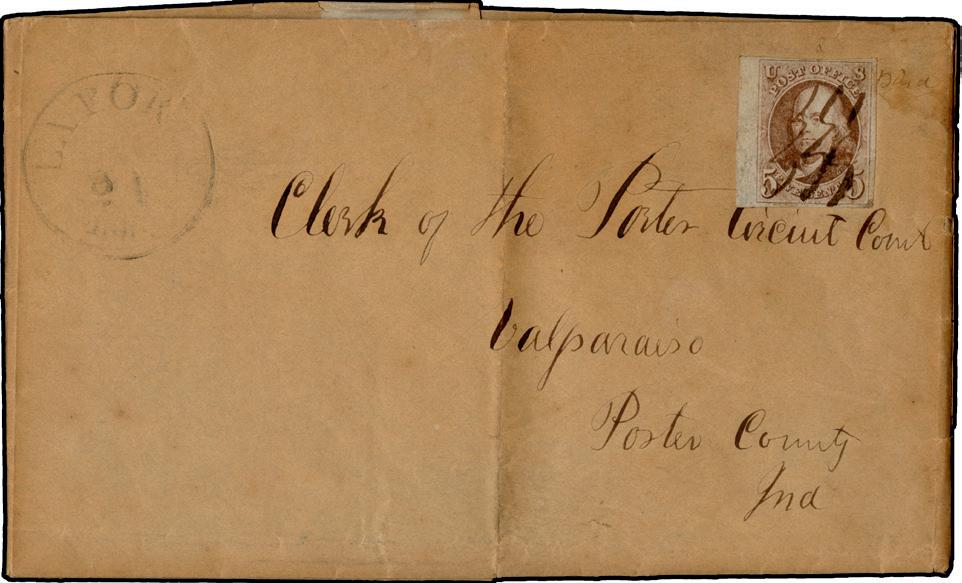 LAPOR
18
U S
POST OFFICE
5 FIVE CENTS 5
Clerk of the Porter Circuit Court
Valparaiso
Porter County
Ind